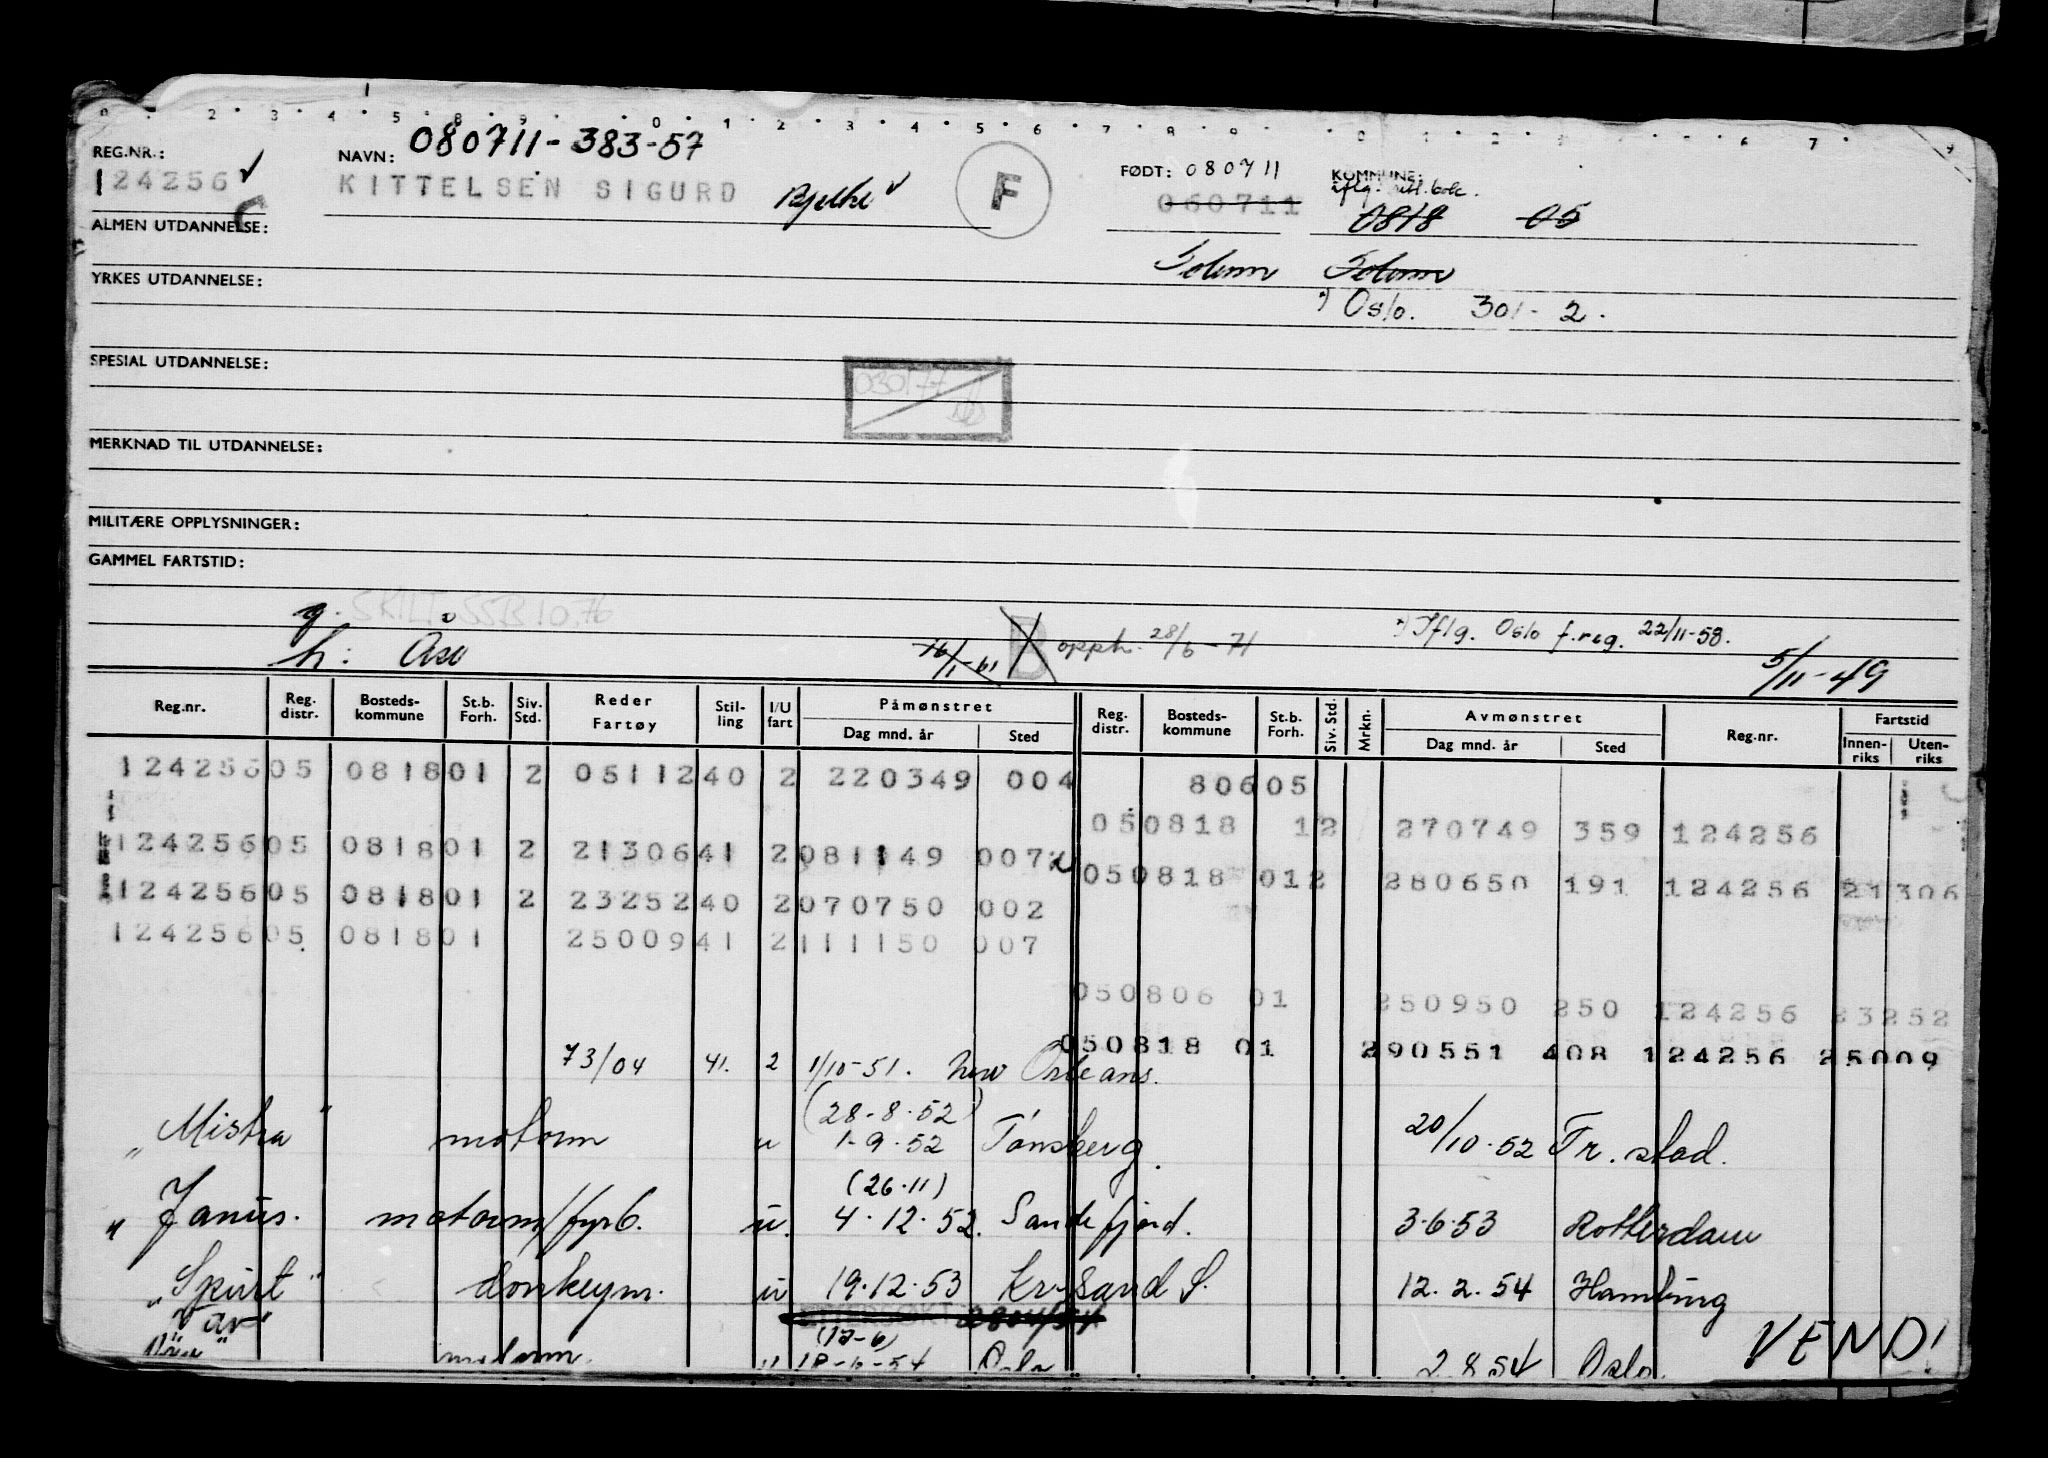 0 . 2 . 3 . 4 . 5 . 8 . 9 . . 0 . 1 . 2 . 3 . 4 . 5 . 6 . 7 . 8 . 9 . . 0 . 1 . 2 . 6 . 7 . 9
REG.NR.: NAVN: 080711-383-57 FØDT: 080711 KOMMUNE:
124256 KITTELSEN SIGURD Bjelke F 060711 0818 05
ALMEN UTDANNELSE:
Solum Solum
YRKES UTDANNELSE: *) Oslo. 301-2.
SPESIAL UTDANNELSE:
030177
MERKNAD TIL UTDANNELSE:
MILITÆRE OPPLYSNINGER:
GAMMEL FARTSTID:
g. SKILT SSB 10.76
h: Åse 16/1-61 B opph. 28/6-71 *) Iflg. Oslo f.reg. 22/11-58. 5/11-49
Reg.nr. Reg. distr. Bosteds-kommune St.b. Forh. Siv. Std. Reder Fartøy Stil-ling I/U fart Påmønstret Dag mnd. år Sted Reg. distr. Bosteds-kommune St.b. Forh. Siv. Std. Mrkn. Avmønstret Dag mnd. år Sted Reg.nr. Fartstid Innen-riks Uten-riks
124256 05 0818 01 2 05112 40 2 220349 004 80605
050818 12 270749 359 124256
124256 05 0818 01 2 21306 41 2 081149 007
050818 012 280650 191 124256 21306
124256 05 0818 01 2 23252 40 2 070750 002
124256 05 0818 01 25009 41 2 111150 007
050806 01 250950 250 124256 23252
050818 01 290551 408 124256 25009
73/04 41. 2 1/10-51. New Orleans.
(28-8-52)
"Mistra" motorm u 1-9-52 Tønsberg. 20/10-52 Fr.stad.
(26-11)
"Janus. motorm/fyrb. u. 4.12.52. Sandefjord. 3-6-53 Rotterdam
"Spurt" donkeym. u 19.12.53 Kr.Sand S. 12.2.54 Hamburg
(17-6)
motorm. u 18-6-54 Oslo 2.8.54 Oslo. VEND!